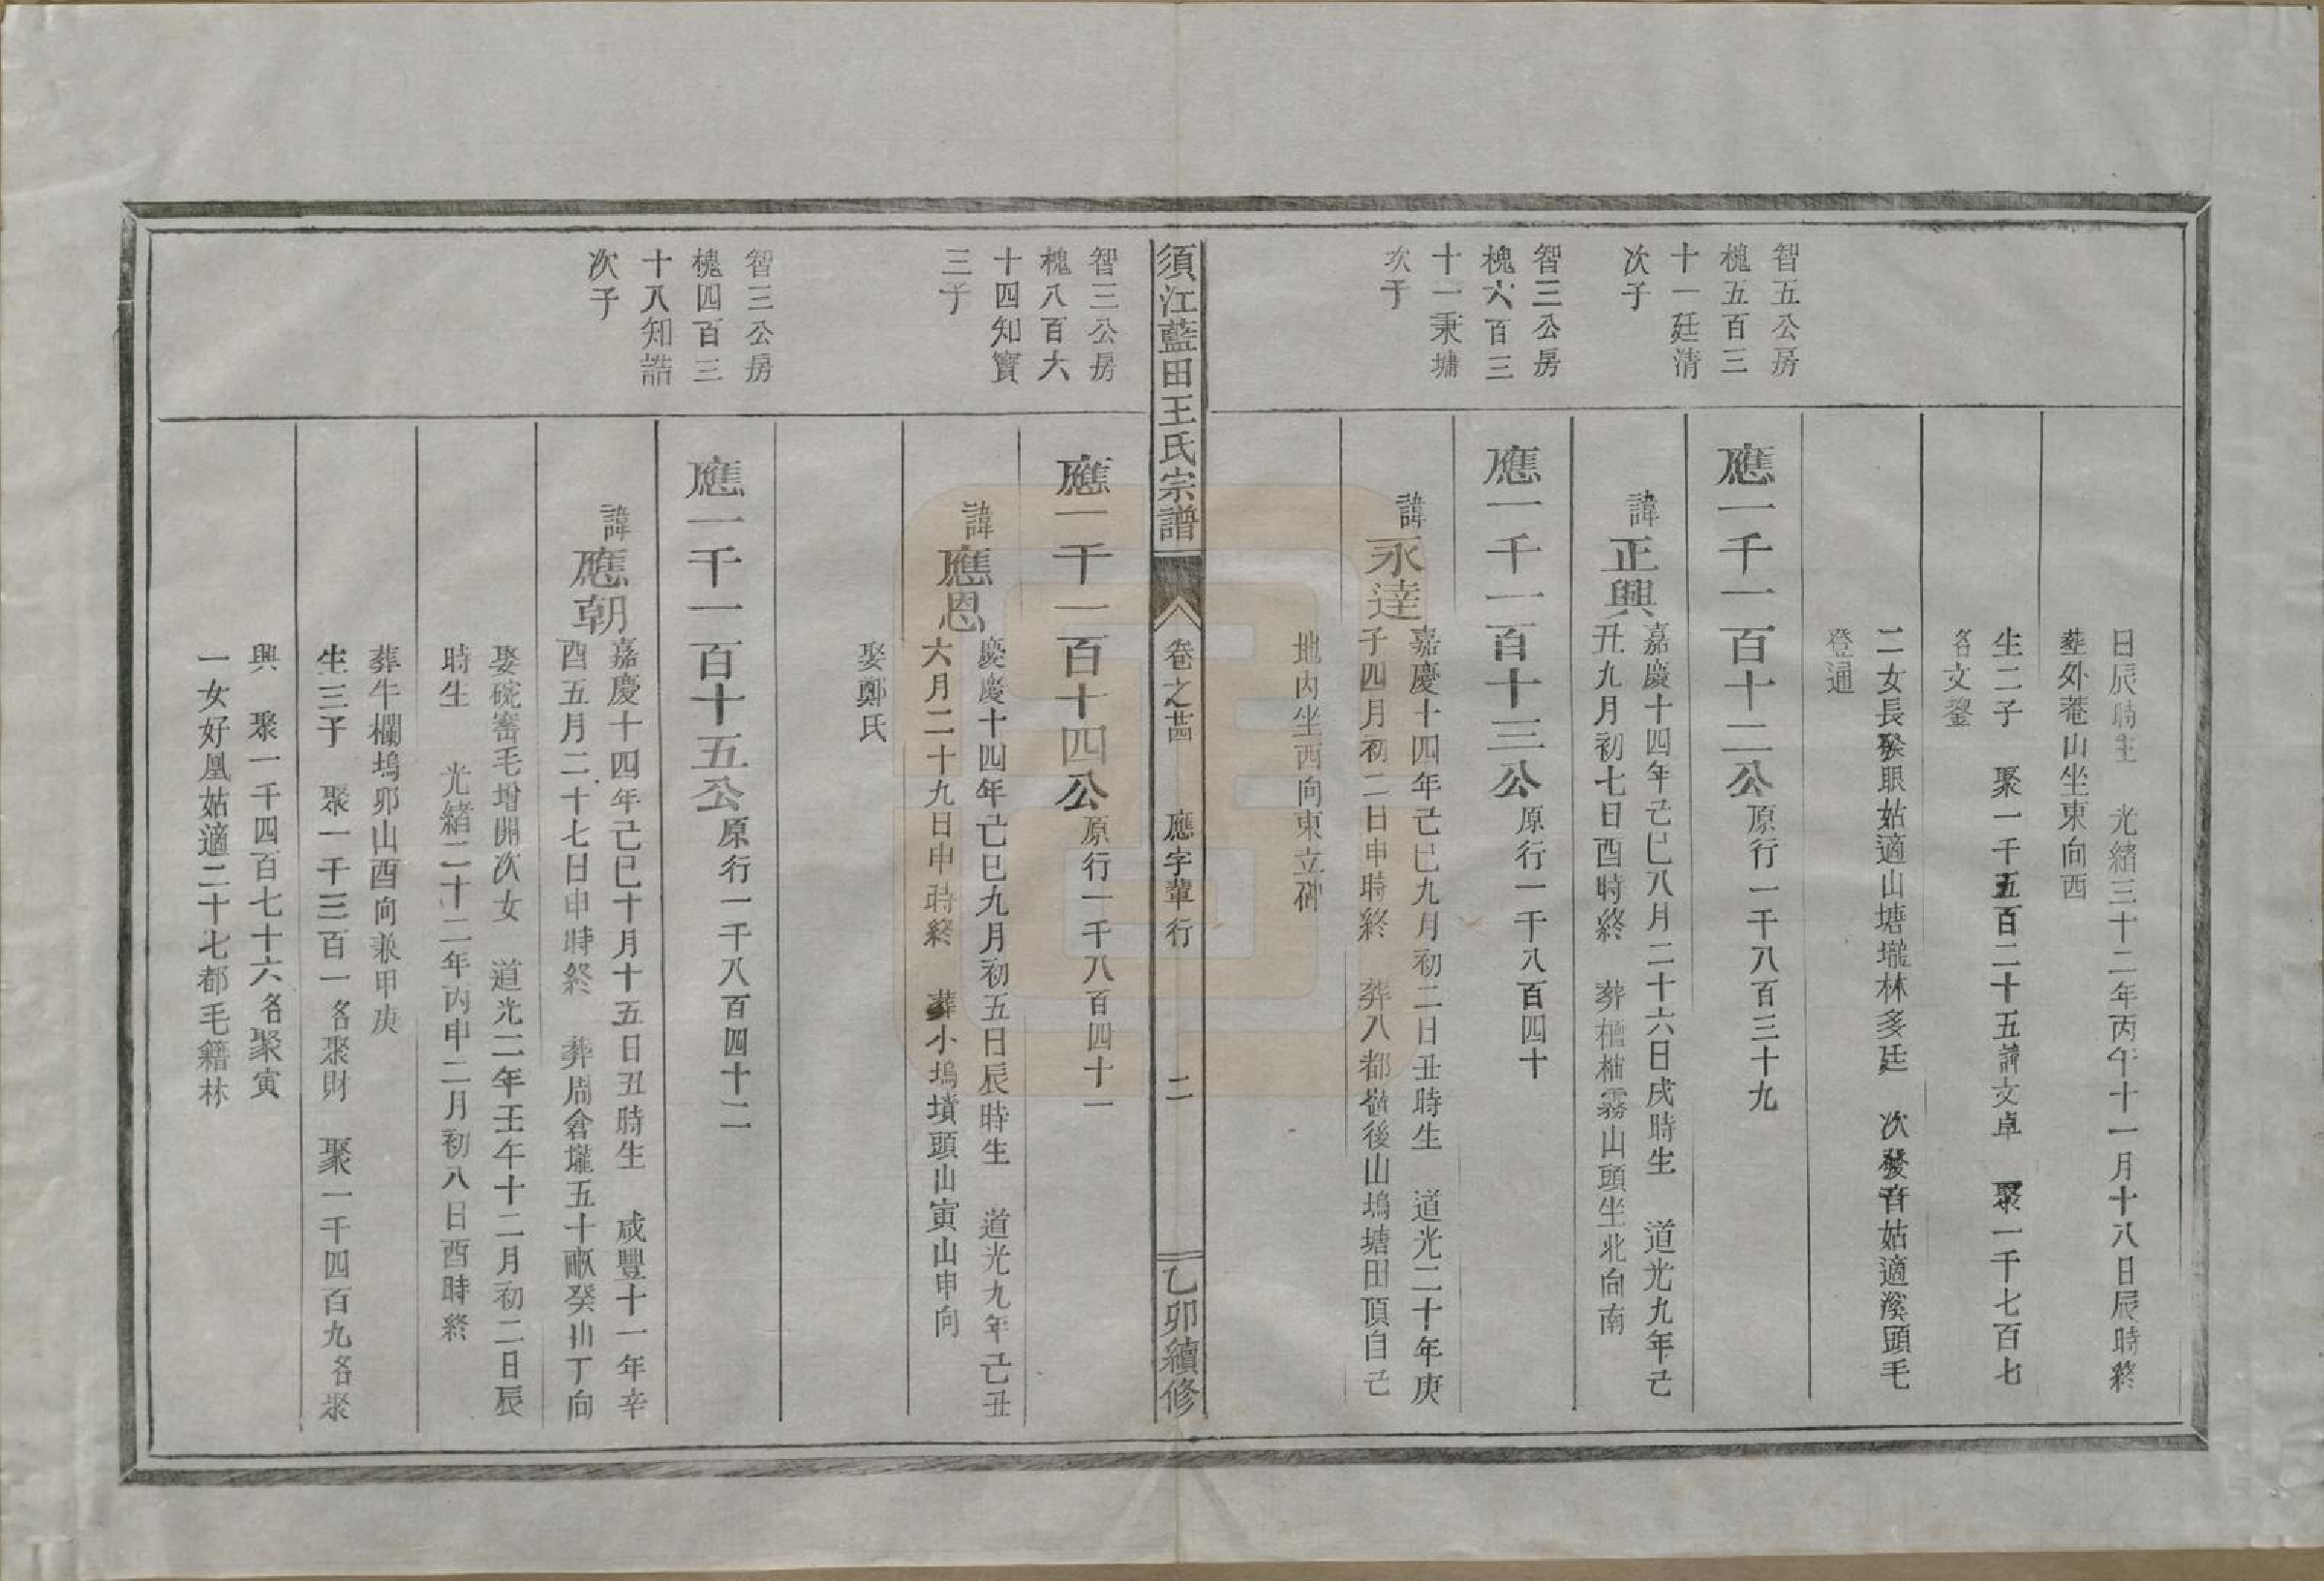 日辰時生　光緒三十二年丙午十一月十八日辰時終
葬外菴山坐東向西
生二子　聚一千五百二十五諱文卓　聚一千七百七
名文鋆
二女長發眼姑適山塘壠林多廷　次發音姑適溪頭毛
登通
智五公房
槐五百三
十一廷清
次子
應一千一百十二公原行一千八百三十九
諱正興
嘉慶十四年己巳八月二十六日戌時生　道光九年己
丑九月初七日酉時終　葬楓楠霧山頭坐北向南
智三公房
槐六百三
十一秉墉
次子
應一千一百十三公原行一千八百四十
諱永達
嘉慶十四年己巳九月初二日丑時生　道光二十年庚
子四月初二日申時終　葬八都嶺後山塢塘田頂自己
地內坐西向東立碑
須江藍田王氏宗譜
卷之
應字輩行
二
乙卯續修
智三公房
槐八百六
十四知寶
三子
應一千一百十四公原行一千八百四十一
諱應恩
慶慶十四年己巳九月初五日辰時生　道光九年己丑
六月二十九日申時終　葬小塢墳頭山寅山申向
娶鄭氏
智三公房
槐四百三
十八知誥
次子
應一千一百十五公原行一千八百四十二
諱應朝
嘉慶十四年己巳十月十五日丑時生　咸豐十一年辛
酉五月二十七日申時終　葬周倉壠五十畝癸山丁向
娶硋窰毛增開次女　道光二年壬午十二月初二日辰
時生　光緒二十二年丙申二月初八日酉時終
葬牛欄塢卯山酉向兼甲庚
生三子　聚一千三百一名聚財　聚一千四百九名聚
興　聚一千四百七十六名聚寅
一女好凰姑適二十七都毛籍林